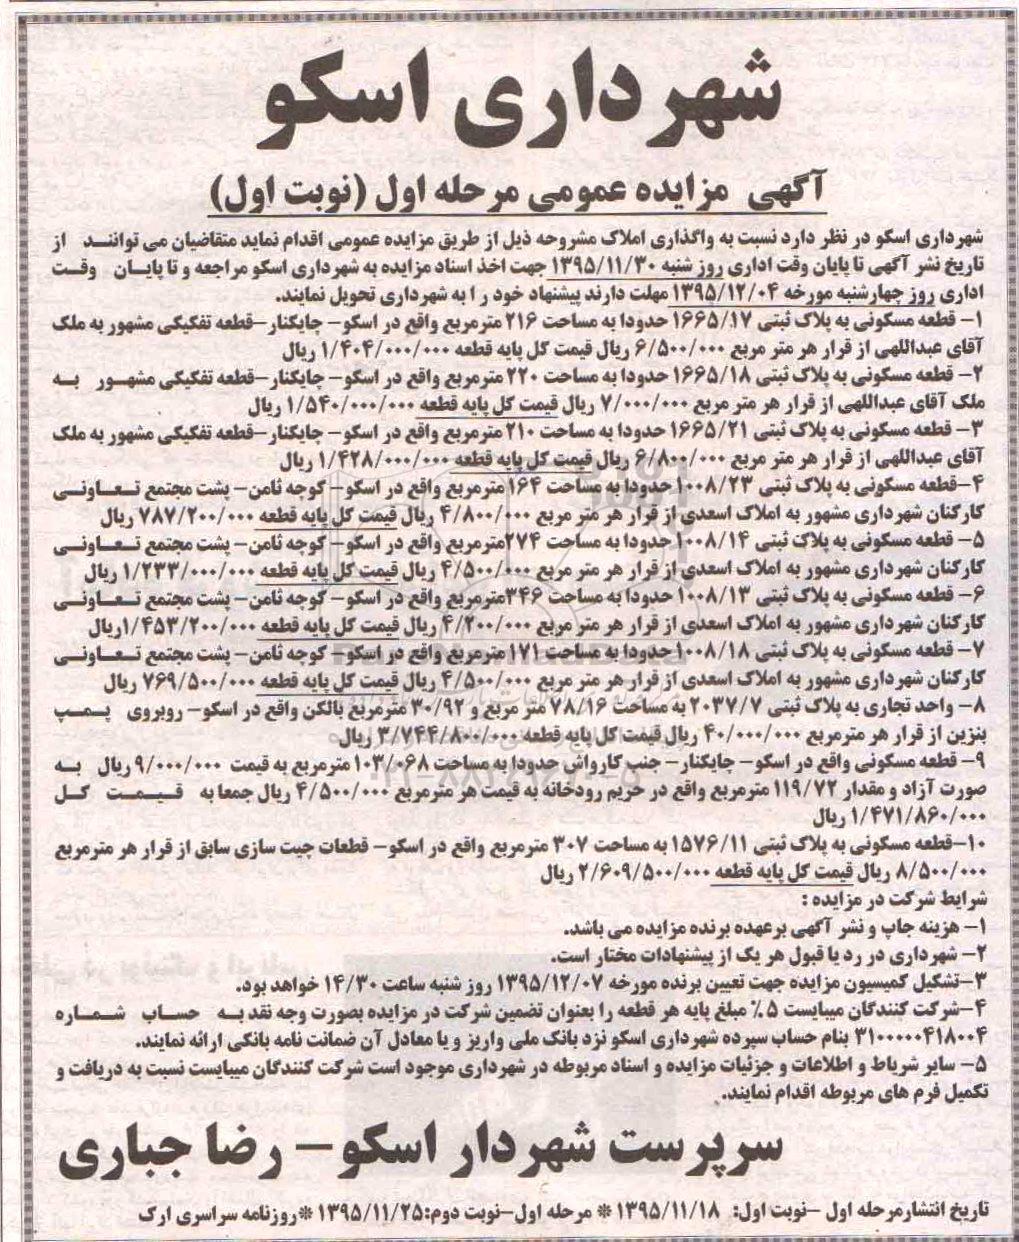 شهرداری اسکو
آگهی مزایده عمومی مرحله اول (نوبت اول)
شهرداری اسکو در نظر دارد نسبت به واگذاری املاک مشروحه ذیل از طریق مزایده عمومی اقدام نماید متقاضیان می توانند از
تاریخ نشر آگهی تا پایان وقت اداری روز شنبه ۱۳۹۵/۱۱/۳۰ جهت اخذ اسناد مزایده به شهرداری اسکو مراجعه و تا پایان وقت
اداری روز چهارشنبه مورخه ۱۳۹۵/۱۲/۰۴ مهلت دارند پیشنهاد خود را به شهرداری تحویل نمایند.
۱- قطعه مسکونی به پلاک ثبتی ۱۶۶۵/۱۷ حدودا به مساحت ۲۱۶ مترمربع واقع در اسکو- چایکنار-قطعه تفکیکی مشهور به ملک
آقای عبداللهی از قرار هر متر مربع ۶/۵۰۰/۰۰۰ ریال قیمت کل پایه قطعه ۱/۴۰۴/۰۰۰/۰۰۰ ریال
۲- قطعه مسکونی به پلاک ثبتی ۱۶۶۵/۱۸ حدودا به مساحت ۲۲۰ مترمربع واقع در اسکو- چایکنار-قطعه تفکیکی مشهور به
ملک آقای عبداللهی از قرار هر متر مربع ۷/۰۰۰/۰۰۰ ریال قیمت کل پایه قطعه ۱/۵۴۰/۰۰۰/۰۰۰ ریال
۳- قطعه مسکونی به پلاک ثبتی ۱۶۶۵/۲۱ حدودا به مساحت ۲۱۰ مترمربع واقع در اسکو- چایکنار-قطعه تفکیکی مشهور به ملک
آقای عبداللهی از قرار هر متر مربع ۶/۸۰۰/۰۰۰ ریال قیمت کل پایه قطعه ۱/۴۲۸/۰۰۰/۰۰۰ ریال
۴-قطعه مسکونی به پلاک ثبتی ۱۰۰۸/۲۳ حدودا به مساحت ۱۶۴ مترمربع واقع در اسکو- کوچه ثامن- پشت مجتمع تعاونی
کارکنان شهرداری مشهور به املاک اسعدی از قرار هر متر مربع ۴/۸۰۰/۰۰۰ ریال قیمت کل پایه قطعه ۷۸۷/۲۰۰/۰۰۰ ریال
۵- قطعه مسکونی به پلاک ثبتی ۱۰۰۸/۱۴ حدودا به مساحت ۲۷۴مترمربع واقع در اسکو- کوچه ثامن- پشت مجتمع تعاونی
کارکنان شهرداری مشهور به املاک اسعدی از قرار هر متر مربع ۴/۵۰۰/۰۰۰ ریال قیمت کل پایه قطعه ۱/۲۳۳/۰۰۰/۰۰۰ ریال
۶- قطعه مسکونی به پلاک ثبتی ۱۰۰۸/۱۳ حدودا به مساحت ۳۴۶مترمربع واقع در اسکو- کوچه ثامن- پشت مجتمع تعاونی
کارکنان شهرداری مشهور به املاک اسعدی از قرار هر متر مربع ۴/۲۰۰/۰۰۰ ریال قیمت کل پایه قطعه ۱/۴۵۳/۲۰۰/۰۰۰ریال
۷- قطعه مسکونی به پلاک ثبتی ۱۰۰۸/۱۸ حدودا به مساحت ۱۷۱ مترمربع واقع در اسکو- کوچه ثامن- پشت مجتمع تعاونی
کارکنان شهرداری مشهور به املاک اسعدی از قرار هر متر مربع ۴/۵۰۰/۰۰۰ ریال قیمت کل پایه قطعه ۷۶۹/۵۰۰/۰۰۰ ریال
۸- واحد تجاری به پلاک ثبتی ۲۰۳۷/۷ به مساحت ۷۸/۱۶ متر مربع و ۳۰/۹۲ مترمربع بالکن واقع در اسکو- روبروی پمپ
بنزین از قرار هر مترمربع ۴۰/۰۰۰/۰۰۰ ریال قیمت کل پایه قطعه ۳/۷۴۴/۸۰۰/۰۰۰ ریال
۹- قطعه مسکونی واقع در اسکو- چایکنار- جنب کارواش حدودا به مساحت ۱۰۳/۰۶۸ مترمربع به قیمت ۹/۰۰۰/۰۰۰ ریال به
صورت آزاد و مقدار ۱۱۹/۷۲ مترمربع واقع در حریم رودخانه به قیمت هر مترمربع ۴/۵۰۰/۰۰۰ ریال جمعا به قیمت کل
۱/۴۷۱/۸۶۰/۰۰۰ ریال
۱۰-قطعه مسکونی به پلاک ثبتی ۱۵۷۶/۱۱ به مساحت ۳۰۷ مترمربع واقع در اسکو- قطعات چیت سازی سابق از قرار هر مترمربع
۸/۵۰۰/۰۰۰ ریال قیمت کل پایه قطعه ۲/۶۰۹/۵۰۰/۰۰۰ ریال
شرایط شرکت در مزایده :
۱- هزینه چاپ و نشر آگهی برعهده برنده مزایده می باشد.
۲- شهرداری در رد یا قبول هر یک از پیشنهادات مختار است.
۳-تشکیل کمیسیون مزایده جهت تعیین برنده مورخه ۱۳۹۵/۱۲/۰۷ روز شنبه ساعت ۱۴/۳۰ خواهد بود.
۴-شرکت کنندگان میبایست ۵٪ مبلغ پایه هر قطعه را بعنوان تضمین شرکت در مزایده بصورت وجه نقد به حساب شماره
۳۱۰۰۰۰۰۴۱۸۰۰۴ بنام حساب سپرده شهرداری اسکو نزد بانک ملی واریز و یا معادل آن ضمانت نامه بانکی ارائه نمایند.
۵- سایر شریاط و اطلاعات و جزئیات مزایده و اسناد مربوطه در شهرداری موجود است شرکت کنندگان میبایست نسبت به دریافت و
تکمیل فرم های مربوطه اقدام نمایند.
سرپرست شهردار اسکو- رضا جباری
تاریخ انتشارمرحله اول -نوبت اول: ۱۳۹۵/۱۱/۱۸ * مرحله اول-نوبت دوم:۱۳۹۵/۱۱/۲۵ *روزنامه سراسری ارک